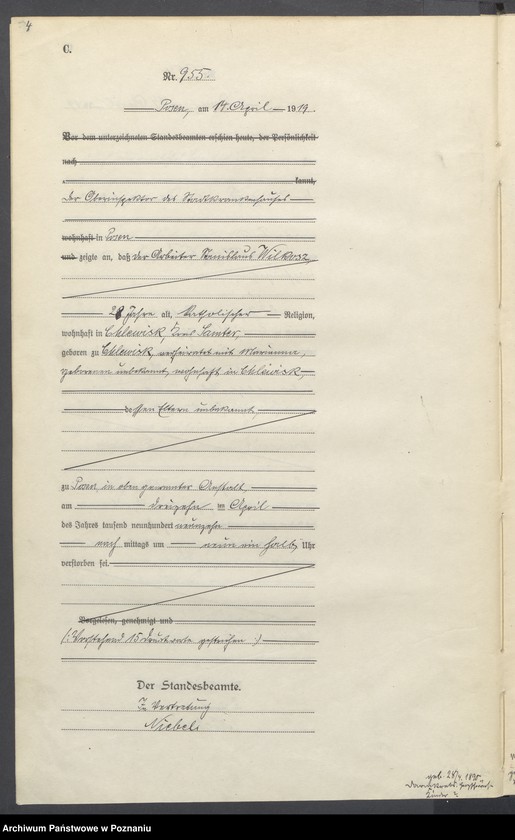 4
C.
Nr. 955
Posen, am 14. April 1919.
Vor dem unterzeichneten Standesbeamten erschien heute, der Persönlichkeit
nach
kannt,
der Oberinspektor des Stadtkrankenhauses
wohnhaft in Posen
und zeigte an, daß der Arbeiter Stanislaus Wilkosz
28 Jahre alt, katholischer Religion,
wohnhaft in Chlewisk, Kreis Samter
geboren zu Chlewisk, verheiratet mit Marianna,
geborenen unbekannt, wohnhaft in Chlewisk,
dessen Eltern unbekannt,
zu Posen, in oben genannter Anstalt,
am dreizehn ten April
des Jahres tausend neunhundert neunzehn
nach mittags um neun ein halb Uhr
verstorben sei.
Vorgelesen, genehmigt und
(: Vorstehend 15 Druckworte gestrichen :)
Der Standesbeamte.
In Vertretung
geb. 1890
Kinder
Archiwum Państwowe w Poznaniu